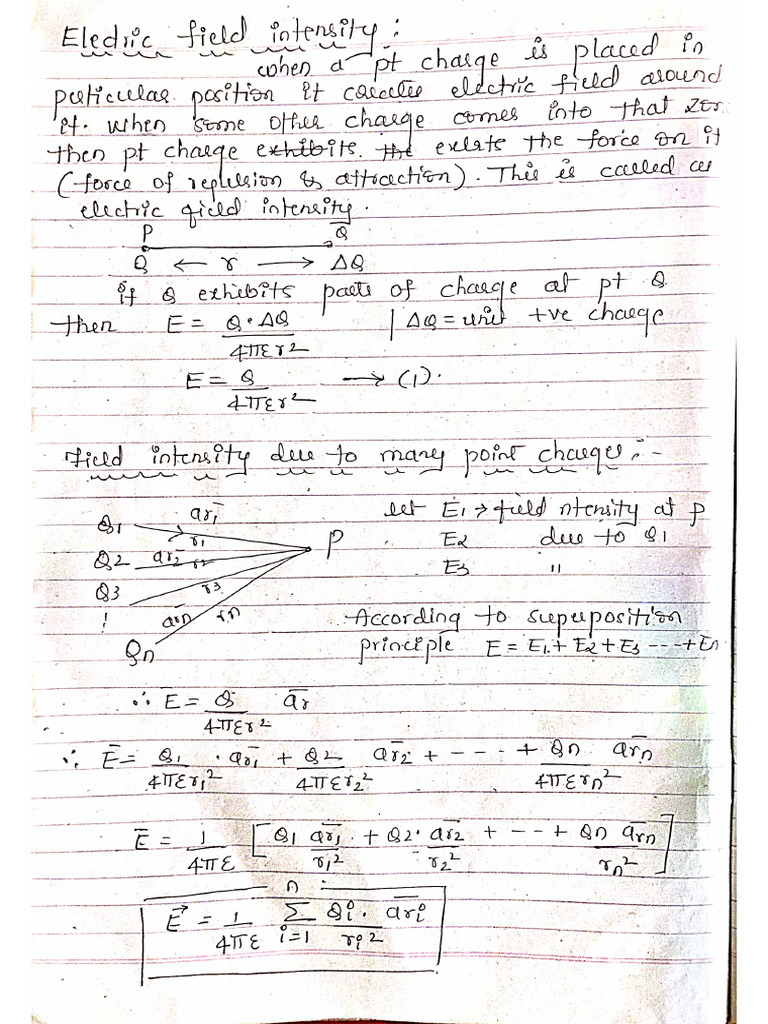 Eledric field intensity :
when a pt charge is placed in
perticular position it creates electric field around
it. when some other charge comes into that zon
then pt charge exhibits the exlets the force on it
(force of replusion & attraction). This is called as
electric field intensity.
P Q
Q ← r → ΔQ
if Q exhibits parts of charge at pt Q
then E = Q·ΔQ / 4πεr² | ΔQ = unit +ve charge
E = Q / 4πεr² → (1).
Field intensity due to many point charges :-
Q1 ar̄1 r1
Q2 ar̄2 r2
Q3 r3
!
Qn ar̄n rn
P
let E1 → field ntensity at p
E2 due to Q1
E3 "
According to superposition
principle E = E1 + E2 + E3 --- + En
∴ E = Q / 4πεr² ār
∴ Ē = Q1 / 4πεr1² · ar̄1 + Q2 / 4πεr2² ar̄2 + ---- + Qn / 4πεrn² ar̄n
Ē = 1 / 4πε [ Q1 ar̄1 / r1² + Q2· ar̄2 / r2² + --- + Qn ar̄n / rn² ]
E⃗ = 1 / 4πε n Σ i=1 Qi · ar̄i / ri²